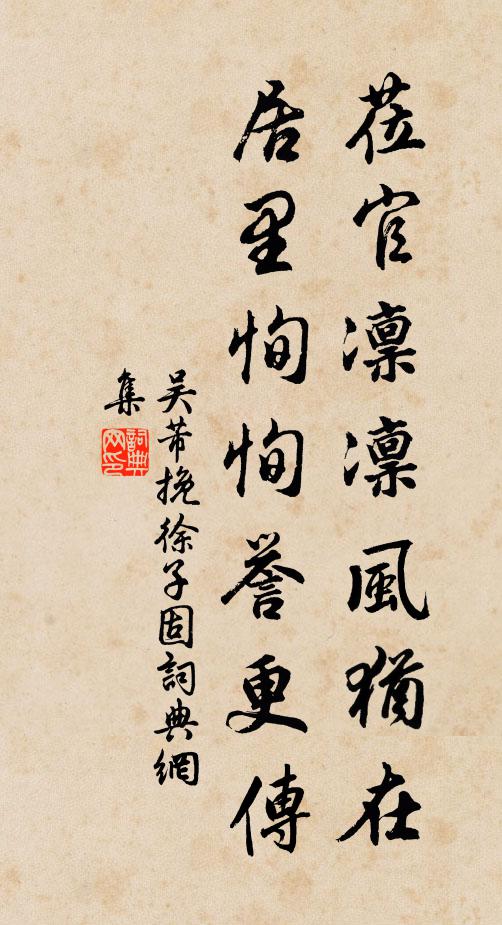 莅官凛凛風猶在
居里恂恂誉更傳
吴芾挽徐子固詞典網
集
詞典
网印